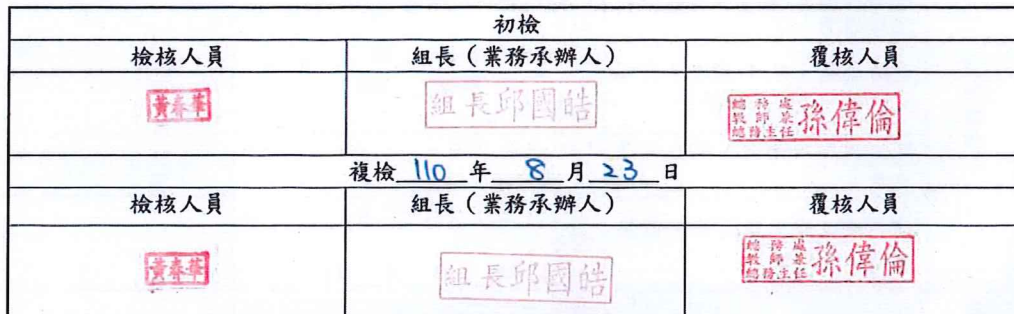 初檢
檢核人員 組長（業務承辦人） 覆核人員
黃春華 組長邱國皓 總務處 製師兼 總務主任 孫偉倫
複檢 110 年 8 月 23 日
檢核人員 組長（業務承辦人） 覆核人員
黃春華 組長邱國皓 總務處 製師兼 總務主任 孫偉倫